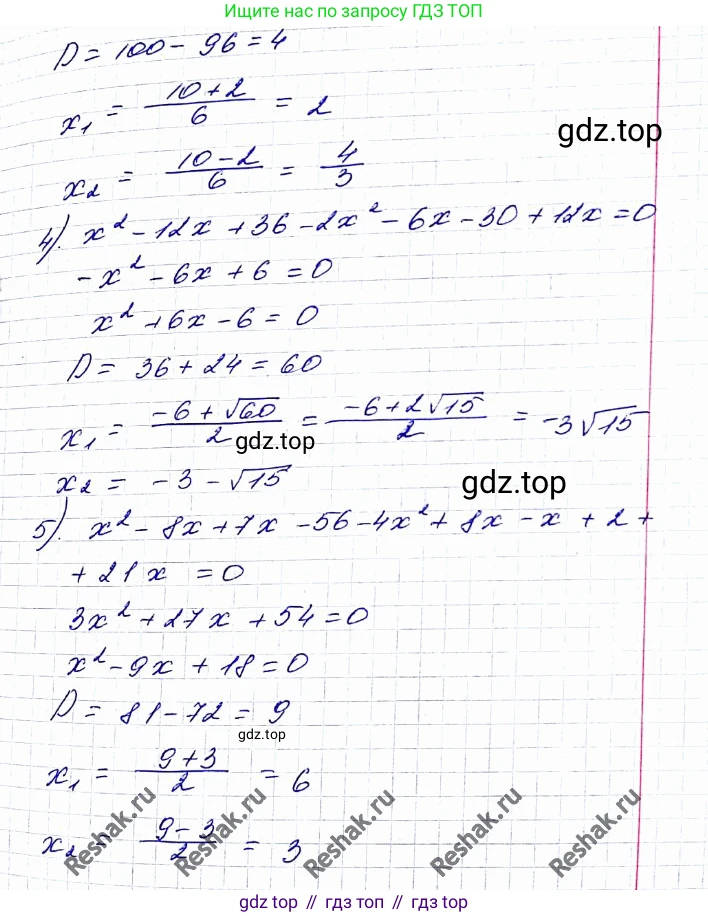 Ищите нас по запросу ГДЗ ТОП
D = 100 - 96 = 4
x₁ = (10+2)/6 = 2
gdz.top
x₂ = (10-2)/6 = 4/3
4). x² - 12x + 36 - 2x² - 6x - 30 + 12x = 0
-x² - 6x + 6 = 0
x² + 6x - 6 = 0
D = 36 + 24 = 60
x₁ = (-6 + √60)/2 = (-6 + 2√15)/2 = -3√15
gdz.top
x₂ = -3 - √15
gdz.top
5). x² - 8x + 7x - 56 - 4x² + 8x - x + 2 +
+ 21x = 0
3x² + 27x + 54 = 0
x² - 9x + 18 = 0
D = 81 - 72 = 9
gdz.top
x₁ = (9+3)/2 = 6
x₂ = (9-3)/2 = 3
Reshak.ru
Reshak.ru
Reshak.ru
Reshak.ru
Reshak.ru
gdz top // гдз топ // гдз.топ